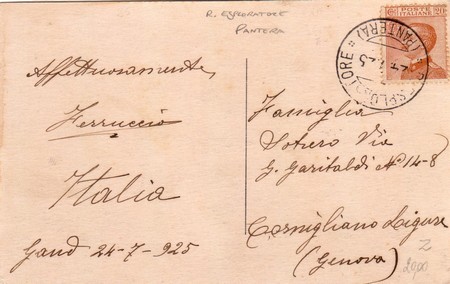 R. ESPLORATORE
PANTERA
POSTE
ITALIANE
ESPLORATORE
(PANTERA)
Affettuosamente
Ferruccio
Italia
Gand 24-7-925
Famiglia
Sotero Via
G. Garibaldi N° 14-8
Cornigliano Ligure
(Genova)
Z
2000